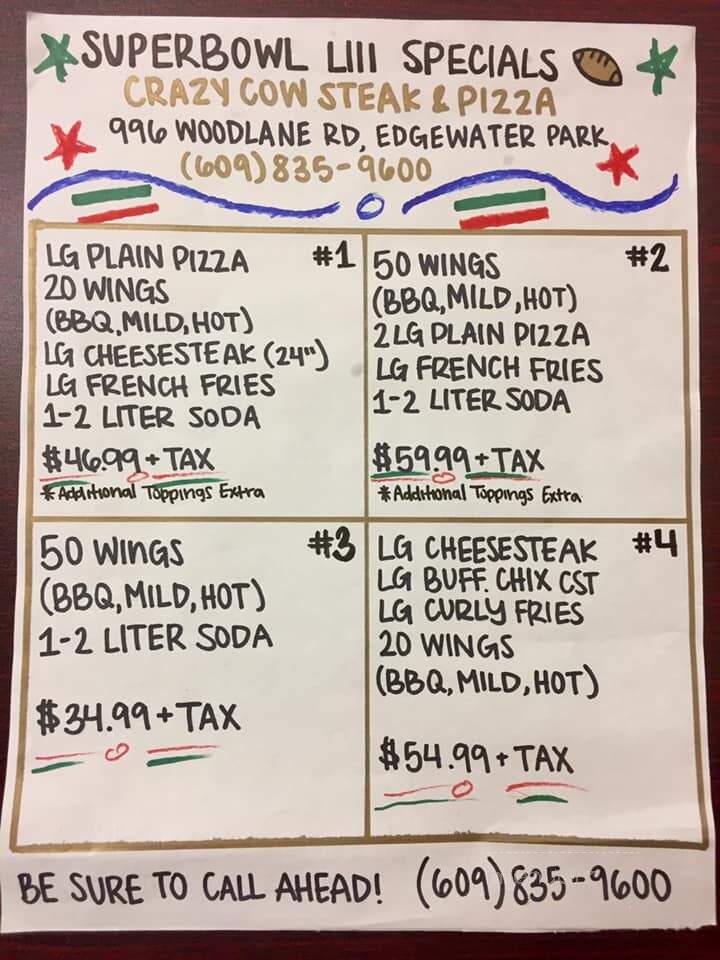 SUPERBOWL LIII SPECIALS
CRAZY COW STEAK & PIZZA
996 WOODLANE RD, EDGEWATER PARK
(609)835-9600
#1
LG PLAIN PIZZA
20 WINGS
(BBQ,MILD,HOT)
LG CHEESESTEAK (24")
LG FRENCH FRIES
1-2 LITER SODA
$46.99+TAX
*Additional Toppings Extra
#2
50 WINGS
(BBQ,MILD,HOT)
2 LG PLAIN PIZZA
LG FRENCH FRIES
1-2 LITER SODA
$59.99+TAX
*Additional Toppings Extra
#3
50 WINGS
(BBQ,MILD,HOT)
1-2 LITER SODA
$34.99+TAX
#4
LG CHEESESTEAK
LG BUFF. CHIX CST
LG CURLY FRIES
20 WINGS
(BBQ,MILD,HOT)
$54.99+TAX
BE SURE TO CALL AHEAD! (609)835-9600